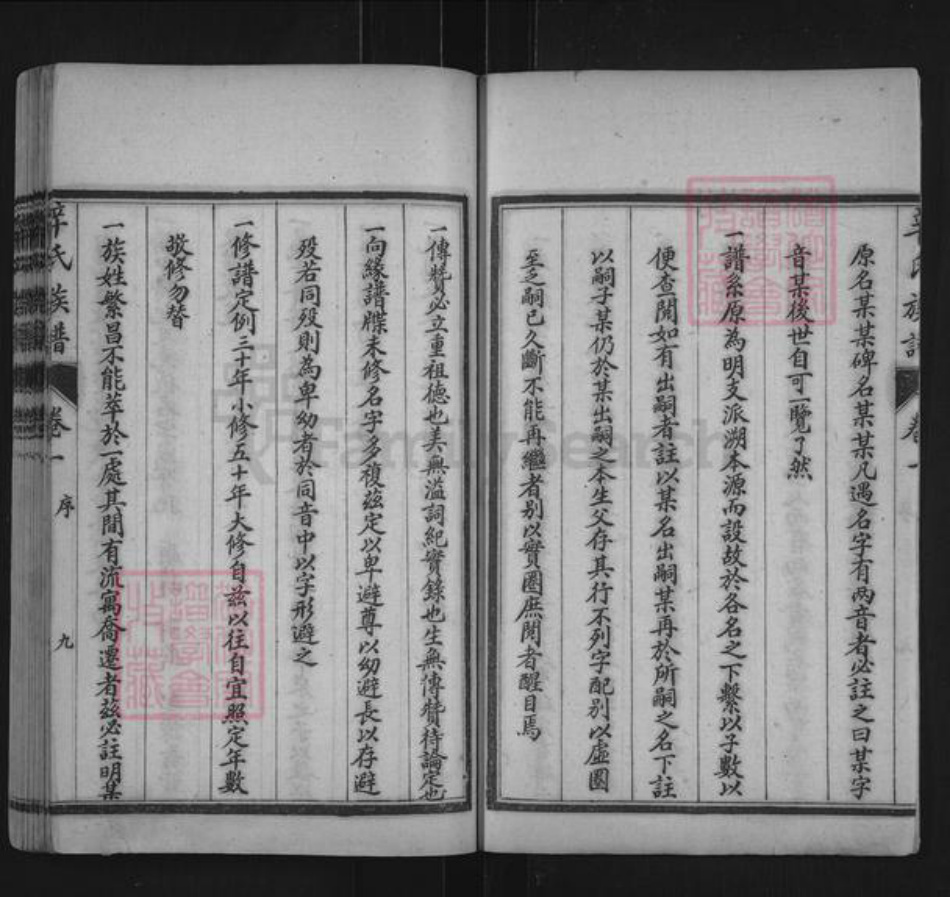 原名某某碑名某某凡遇名字有两音者必註之曰某字
音某後世自可一覽了然
一譜系原為明支派溯本源而設故於各名之下繫以子數以
便查閱如有出嗣者註以某名出嗣某再於所嗣之名下註
以嗣子某仍於某出嗣之本生父存其行不列字配別以虛圈
至乏嗣已久斷不能再繼者别以實圈庶閱者醒目焉
一傳贊必立重祖德也美無溢詞紀實錄也生無傳贊待論定也
一向緣譜牒未修名字多複茲定以卑避尊以幼避長以存避
歿若同歿則為卑幼者於同音中以字形避之
一修譜定例三十年小修五十年大修自茲以往自宜照定年數
敬修勿替
一族姓繁昌不能萃於一處其間有流寓喬遷者茲必註明某
辛氏族譜 卷一 序 九
FamilySearch